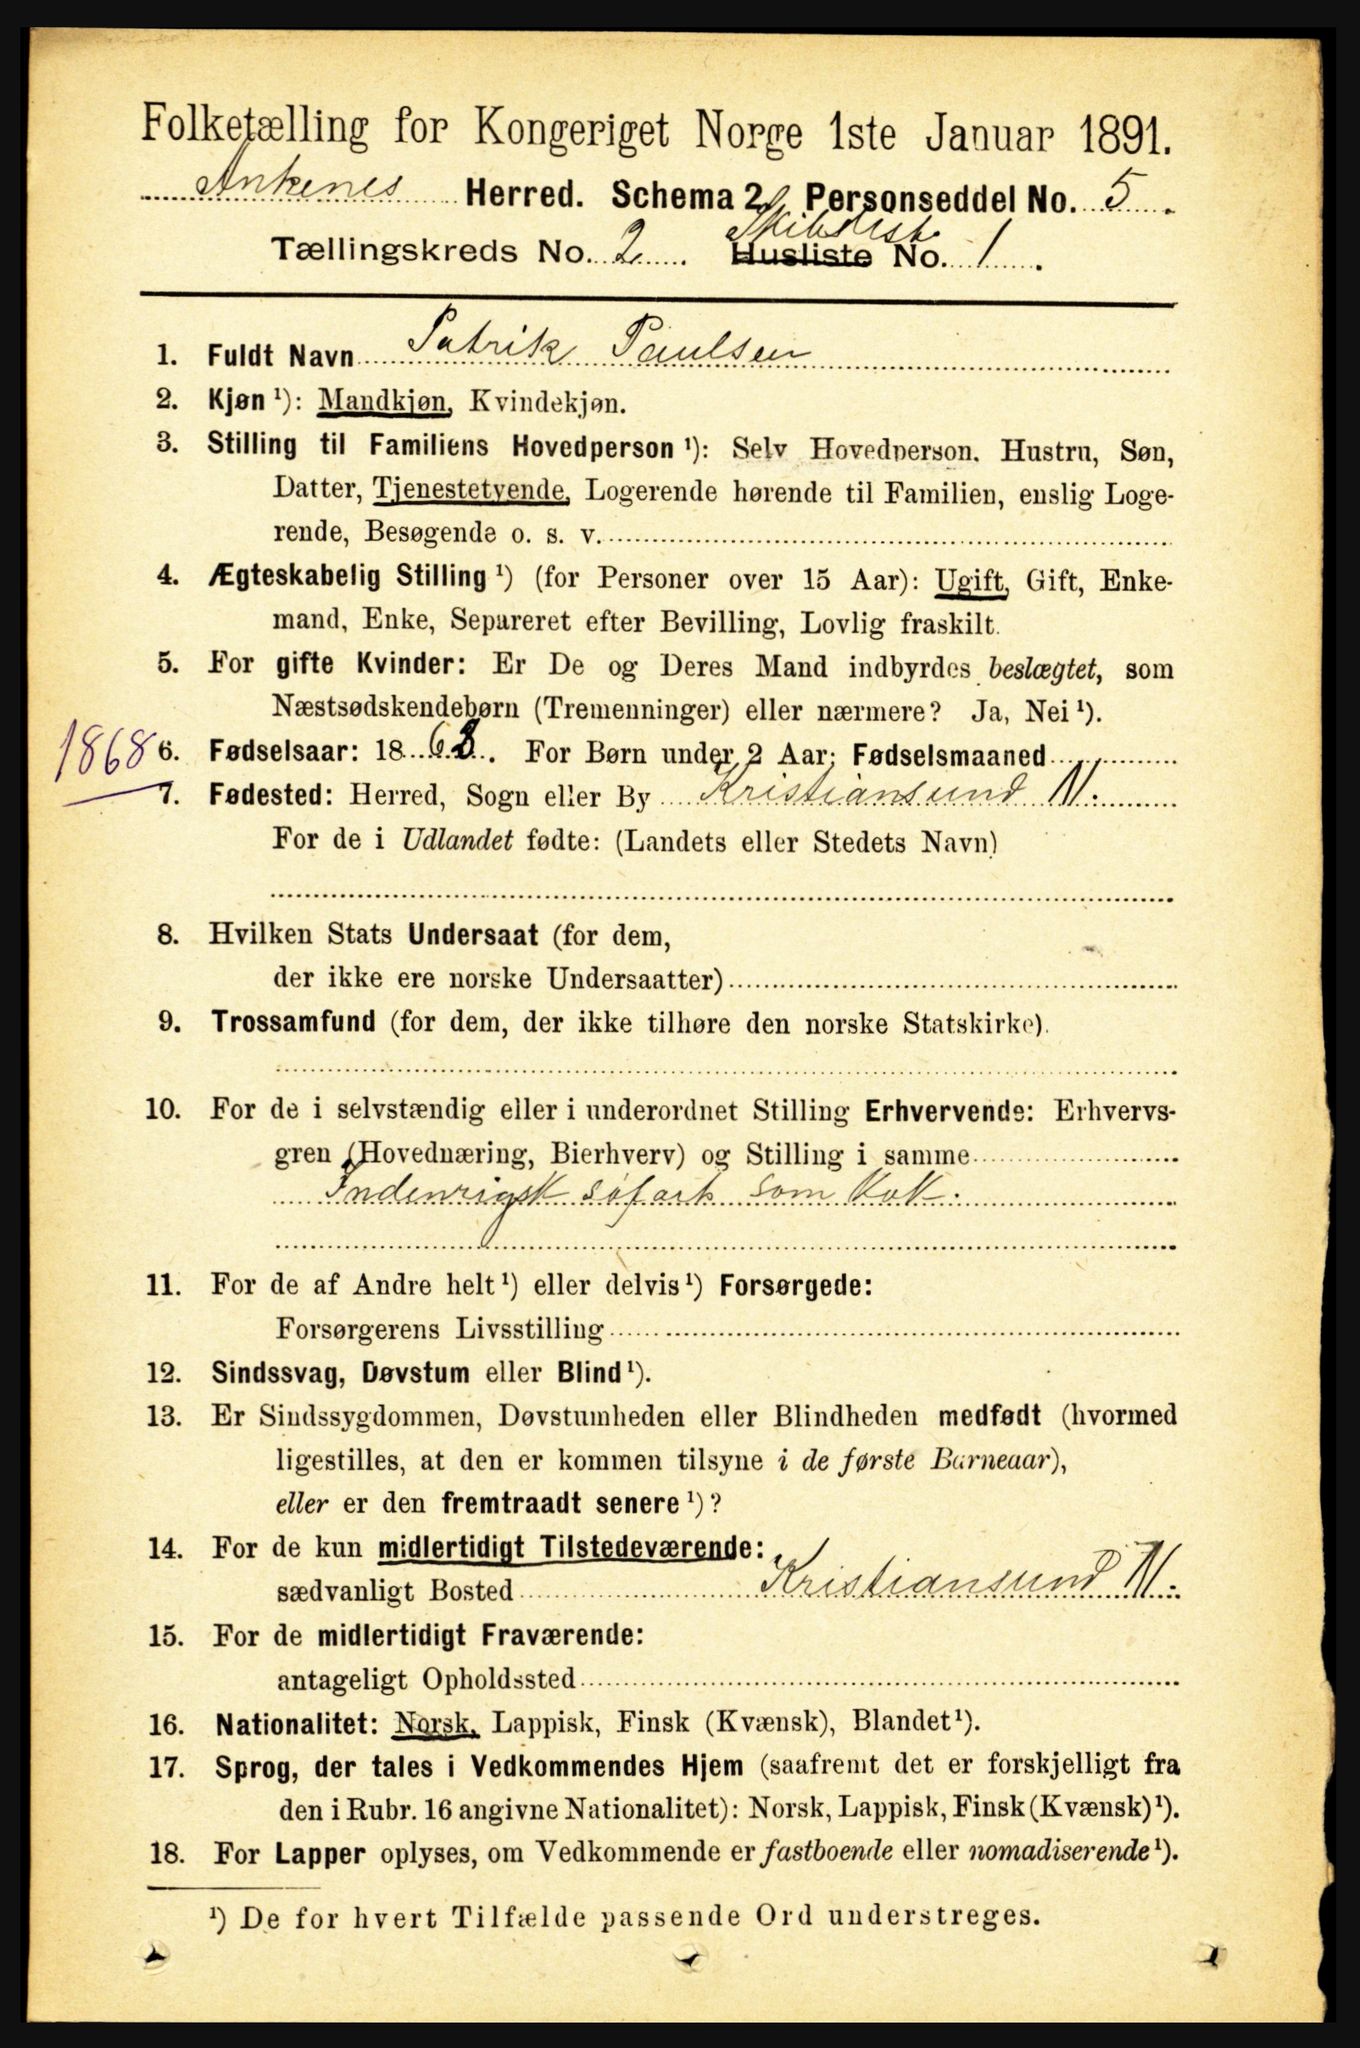 Folketælling for Kongeriget Norge 1ste Januar 1891.
Ankenes Herred. Schema 2. Personseddel No. 5
Skibslist
Tællingskreds No. 2 Husliste No. 1
1. Fuldt Navn Patrik Paulsen
2. Kjøn ¹): Mandkjøn, Kvindekjøn.
3. Stilling til Familiens Hovedperson ¹): Selv Hovedperson. Hustru, Søn,
Datter, Tjenestetyende, Logerende hørende til Familien, enslig Loge-
rende, Besøgende o. s. v.
4. Ægteskabelig Stilling ¹) (for Personer over 15 Aar): Ugift, Gift, Enke-
mand, Enke, Separeret efter Bevilling, Lovlig fraskilt.
5. For gifte Kvinder: Er De og Deres Mand indbyrdes beslægtet, som
Næstsødskendebørn (Tremenninger) eller nærmere? Ja, Nei ¹).
1868 6. Fødselsaar: 18 68. For Børn under 2 Aar: Fødselsmaaned
7. Fødested: Herred, Sogn eller By Kristiansund N.
For de i Udlandet fødte: (Landets eller Stedets Navn)
8. Hvilken Stats Undersaat (for dem,
der ikke ere norske Undersaatter)
9. Trossamfund (for dem, der ikke tilhøre den norske Statskirke).
10. For de i selvstændig eller i underordnet Stilling Erhvervende: Erhvervs-
gren (Hovednæring, Bierhverv) og Stilling i samme
Indenrigsk søfart som Kok.
11. For de af Andre helt ¹) eller delvis ¹) Forsørgede:
Forsørgerens Livsstilling
12. Sindssvag, Døvstum eller Blind ¹).
13. Er Sindssygdommen, Døvstumheden eller Blindheden medfødt (hvormed
ligestilles, at den er kommen tilsyne i de første Barneaar),
eller er den fremtraadt senere ¹)?
14. For de kun midlertidigt Tilstedeværende:
sædvanligt Bosted Kristiansund N.
15. For de midlertidigt Fraværende:
antageligt Opholdssted
16. Nationalitet: Norsk, Lappisk, Finsk (Kvænsk), Blandet ¹).
17. Sprog, der tales i Vedkommendes Hjem (saafremt det er forskjelligt fra
den i Rubr. 16 angivne Nationalitet): Norsk, Lappisk, Finsk (Kvænsk) ¹).
18. For Lapper oplyses, om Vedkommende er fastboende eller nomadiserende ¹).
¹) De for hvert Tilfælde passende Ord understreges.